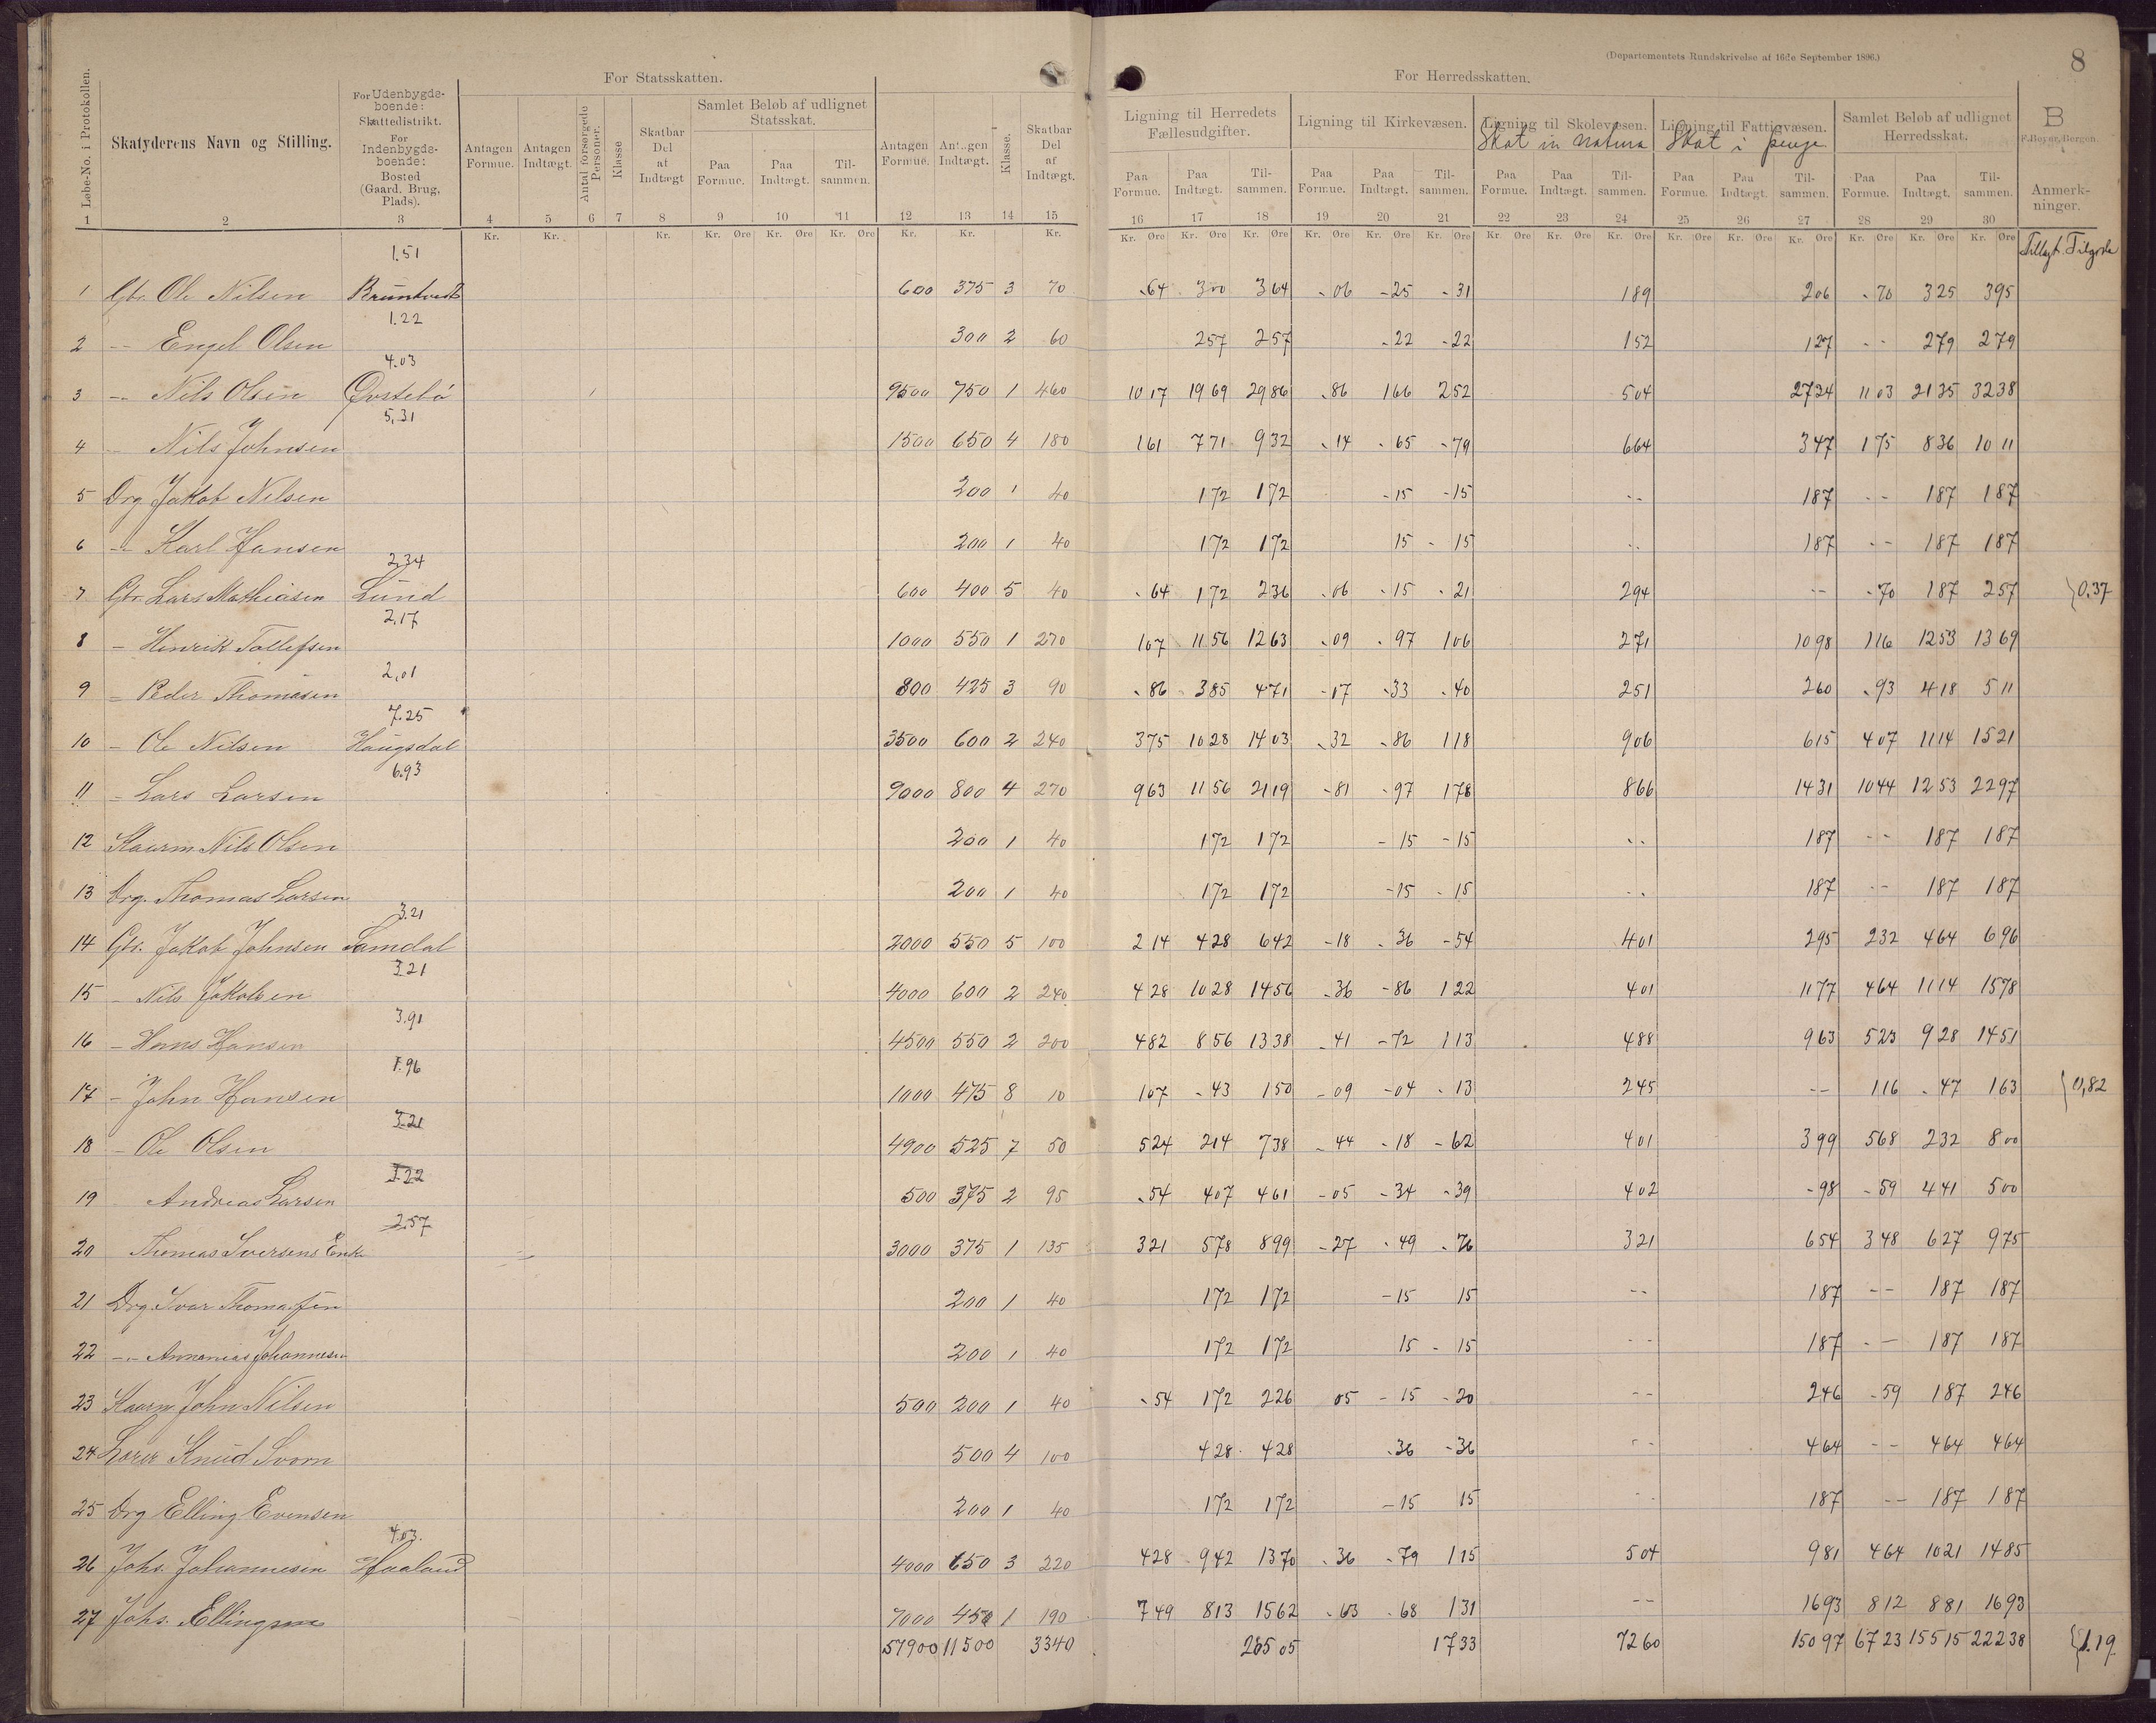 (Departementets Rundskrivelse af 16de September 1896.) 8
For Statsskatten. For Herredsskatten.
Løbe-No. i Protokollen. Skatyderens Navn og Stilling. For Udenbygdsboende: Skattedistrikt. For Indenbygdsboende: Bosted (Gaard, Brug, Plads). Antagen Formue. Antagen Indtægt. Antal forsørgede Personer. Klasse Skatbar Del at Indtægt Samlet Beløb af udlignet Statsskat. Paa Formue. Paa Indtægt. Tilsammen. Antagen Formue. Antagen Indtægt. Klasse. Skatbar Del af Indtægt. Ligning til Herredets Fællesudgifter. Paa Formue. Paa Indtægt. Tilsammen. Ligning til Kirkevæsen. Paa Formue. Paa Indtægt. Tilsammen. Ligning til Skolevæsen. Skat in natura Paa Formue. Paa Indtægt. Tilsammen. Ligning til Fattigvæsen. Skat i penge Paa Formue. Paa Indtægt. Tilsammen. Samlet Beløb af udlignet Herredsskat. Paa Formue. Paa Indtægt. Tilsammen. B F. Beyer, Bergen Anmerkninger.
1 2 3 4 5 6 7 8 9 10 11 12 13 14 15 16 17 18 19 20 21 22 23 24 25 26 27 28 29 30
Kr. Kr. Kr. Kr. Øre Kr. Øre Kr. Øre Kr. Kr. Kr. Kr. Øre Kr. Øre Kr. Øre Kr. Øre Kr. Øre Kr. Øre Kr. Øre Kr. Øre Kr. Øre Kr. Øre Kr. Øre Kr. Øre Kr. Øre Kr. Øre Kr. Øre Tillagt. Tilgode
1.51
1 Gbr. Ole Nilsen Bruntvedt 600 375 3 70 -64 300 364 -06 -25 -31 189 206 -70 325 395
1.22
2 -- Engel Olsen 300 2 60 257 257 -22 -22 152 127 -- 279 279
4.03
3 -- Nils Olsen Øvstebø 9500 750 1 460 1017 1969 2986 -86 166 252 504 2734 1103 2135 3238
5,31
4 -- Nils Johnsen 1500 650 4 180 161 771 932 -14 -65 -79 664 347 175 836 1011
5 Drg Jakob Nilsen 200 1 40 172 172 -15 -15 -- 187 -- 187 187
6 -- Karl Hansen 200 1 40 172 172 15 - 15 -- 187 -- 187 187
2,34
7 Gbr Lars Mathiasen Lund 600 400 5 40 -64 172 236 -06 -15 -21 294 -- -70 187 257 } 0.37
2.17
8 - Henrik Tollefsen 1000 550 1 270 107 1156 1263 -09 -97 106 271 1098 116 1253 1369
2,01
9 - Peder Thomasen 800 425 3 90 -86 385 471 -17 -33 -40 251 260 -93 418 511
7.25
10 - Ole Nilsen Haugsdal 3500 600 2 240 375 1028 1403 -32 -86 118 906 615 407 1114 1521
6.93
11 - Lars Larsen 9000 800 4 270 963 1156 2119 -81 -97 178 866 1431 1044 1253 2297
12 Kaarm. Nils Olsen 200 1 40 172 172 -15 -15 -- 187 -- 187 187
13 Drg. Thomas Larsen 200 1 40 172 172 -15 -15 -- 187 -- 187 187
3.21
14 Gbr. Jakob Johnsen Samdal 2000 550 5 100 214 428 642 -18 -36 -54 401 295 232 464 696
3.21
15 - Nils Jakobsen 4000 600 2 240 428 1028 1456 -36 -86 122 401 1177 464 1114 1578
3.91
16 - Hans Hansen 4500 550 2 200 482 856 1338 -41 -72 113 488 963 523 928 1451
1.96
17 - John Hansen 1000 475 8 10 107 -43 150 -09 -04 -13 245 -- 116 -47 163 { 0,82
3.21
18 - Ole Olsen 4900 525 7 50 524 214 738 -44 -18 -62 401 399 568 232 800
3.22
19 - Andreas Larsen 500 375 2 95 -54 407 461 -05 -34 -39 402 -98 -59 441 500
2.57
20 Thomas Iversens Enke 3000 375 1 135 321 578 899 -27 -49 -76 321 654 348 627 975
21 Drg. Ivar Thomassen 200 1 40 172 172 -15 15 -- 187 -- 187 187
22 -- Annanias Johannesen 200 1 40 172 172 15 - 15 -- 187 -- 187 187
23 Kaarm John Nilsen 500 200 1 40 -54 172 226 05 -15 -20 -- 246 -59 187 246
24 Lærer Knud Svorn 500 4 100 428 428 -36 -36 -- 464 -- 464 464
25 Drg Elling Evensen 200 1 40 172 172 -15 15 -- 187 -- 187 187
4.03.
26 Johs. Johannesen Haaland 4000 650 3 220 428 942 1370 -36 -79 115 504 981 464 1021 1485
27 Johs. Ellingsen 7000 450 1 190 749 813 1562 -63 -68 131 -- 1693 812 881 1693
57900 11500 3340 20505 1733 7260 15097 6723 15515 22238 { 1.19